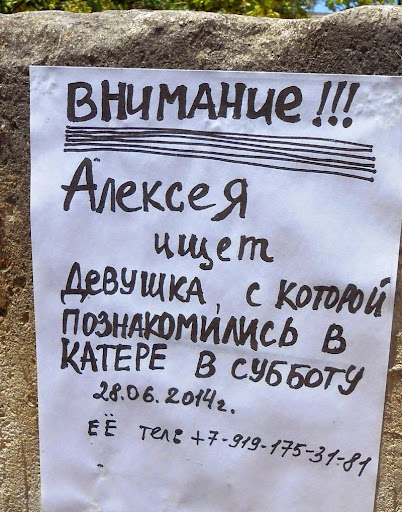 ВНИМАНИЕ!!!
АЛЕКСЕЯ
ищет
ДЕВУШКА, С КОТОРОЙ
ПОЗНАКОМИЛИСЬ В
КАТЕРЕ В СУББОТУ
28.06.2014г.
ЕЁ тел: +7-919-175-31-81